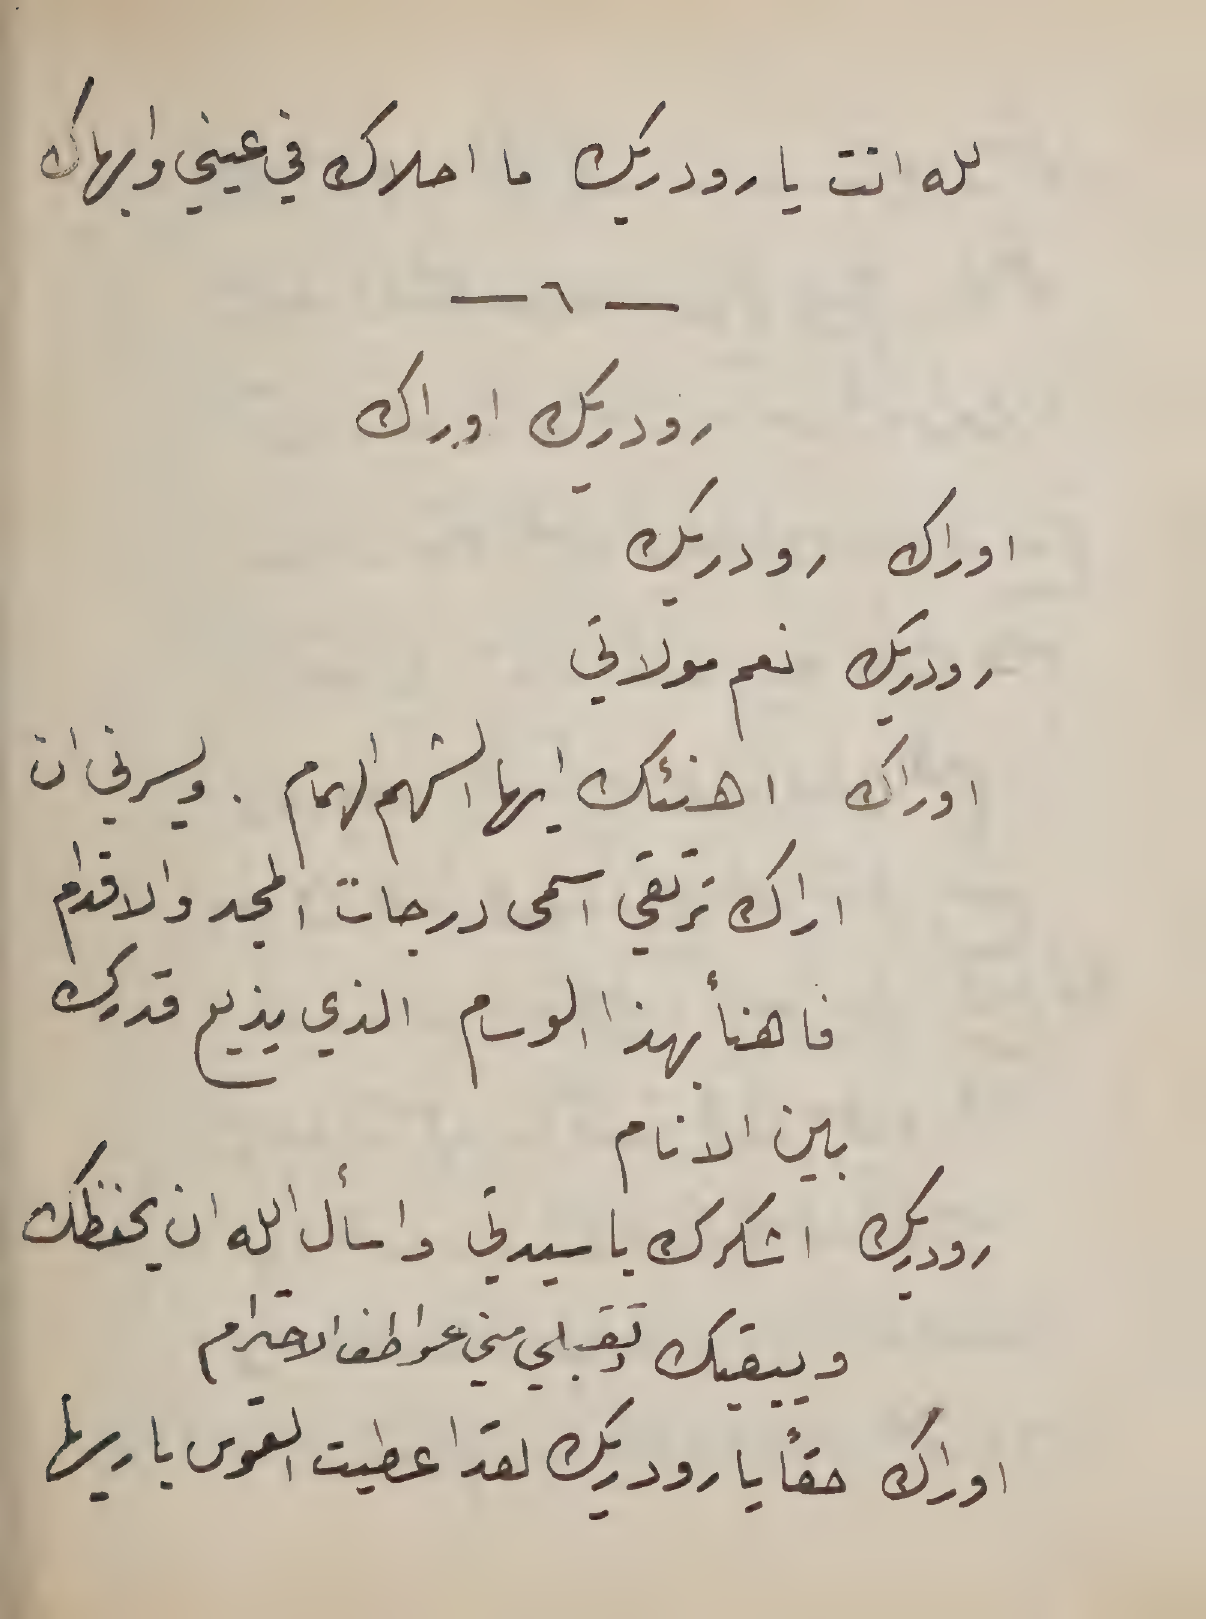 لله انت يا رودريك ما احلاك في عيني وابهاك
— ٦ —
رودريك اوراك
اوراك رودريك
رودريك نعم مولاتي
اوراك اهنئك ايها الشهم الهمام . ويسرني ان
اراك ترتقي اسمى درجات المجد والاقدام
فاهنأ بهذا الوسام الذي يذيع قدرك
بين الانام
رودريك اشكرك يا سيدتي واسأل الله ان يحفظك
ويبقيك تقبلي مني عواطف الاحترام
اوراك حقاً يا رودريك لقد اعطيت القوس باريها